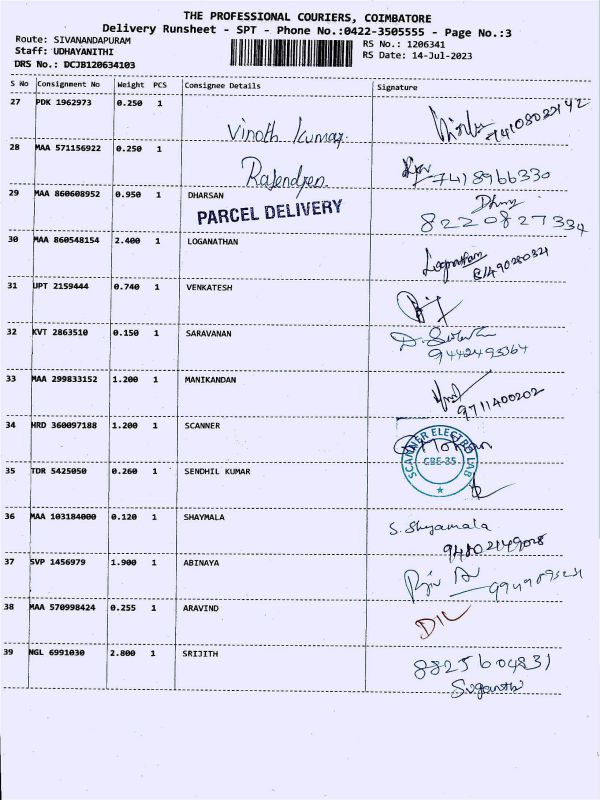 THE PROFESSIONAL COURIERS, COIMBATORE
Delivery Runsheet - SPT - Phone No.:0422-3505555 - Page No.:3
Route: SIVANANDAPURAM
RS No.: 1206341
Staff: UDHAYANITHI
RS Date: 14-Jul-2023
DRS No.: DCJB120634103
S No Consignment No Weight PCS Consignee Details Signature
27 PDK 1962973 0.250 1 Vinoth Kumar
28 MAA 571156922 0.250 1 Rajendren 7418966330
29 MAA 860608952 0.950 1 DHARSAN
PARCEL DELIVERY 8220827334
30 MAA 860548154 2.400 1 LOGANATHAN Loganathan
31 UPT 2159444 0.740 1 VENKATESH
32 KVT 2863510 0.150 1 SARAVANAN
9442493364
33 MAA 299833152 1.200 1 MANIKANDAN
9711400202
34 HRD 360097188 1.200 1 SCANNER
SCANNER ELECTRO LAB
CBE-35
35 TDR 5425050 0.260 1 SENDHIL KUMAR
36 MAA 103184000 0.120 1 SHAYMALA S. Shyamala
37 SVP 1456979 1.900 1 ABINAYA
38 MAA 570998424 0.255 1 ARAVIND
39 NGL 6991030 2.800 1 SRIJITH 8825604831
Suganthi